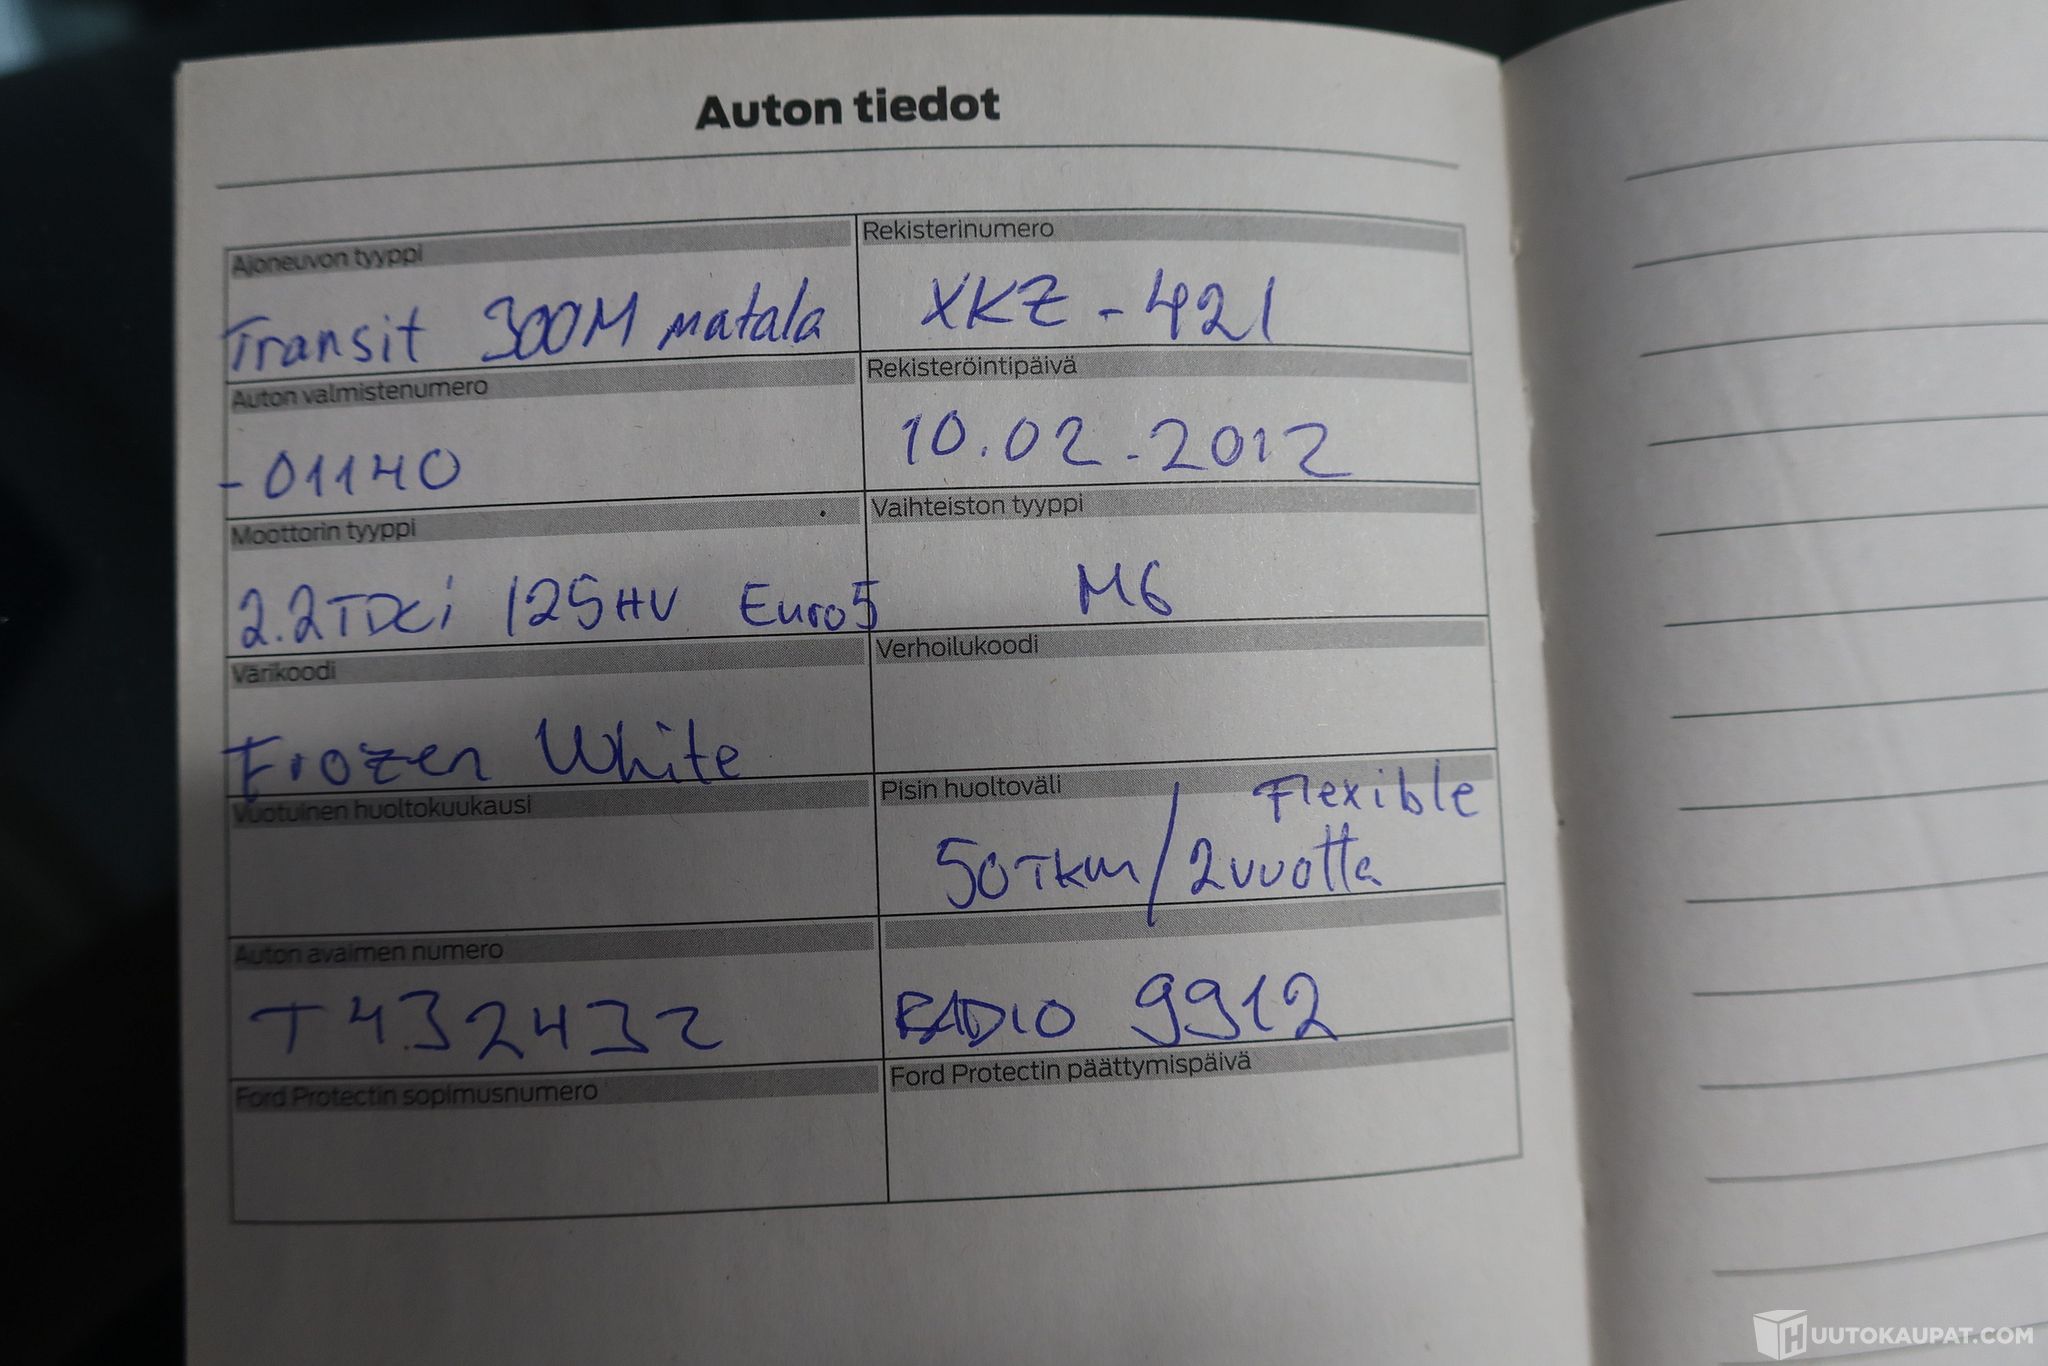 Auton tiedot
Ajoneuvon tyyppi
Transit 300M matala
Rekisterinumero
XKZ-421
Auton valmistenumero
-01140
Rekisteröintipäivä
10.02.2012
Moottorin tyyppi
2.2TDCi 125HV Euro5
Vaihteiston tyyppi
M6
Värikoodi
Frozen White
Verhoilukoodi
Vuotuinen huoltokuukausi
Pisin huoltoväli
Flexible
50TKM/2vuotta
Auton avaimen numero
T432432
RADIO 9912
Ford Protectin sopimusnumero
Ford Protectin päättymispäivä
HUUTOKAUPAT.COM